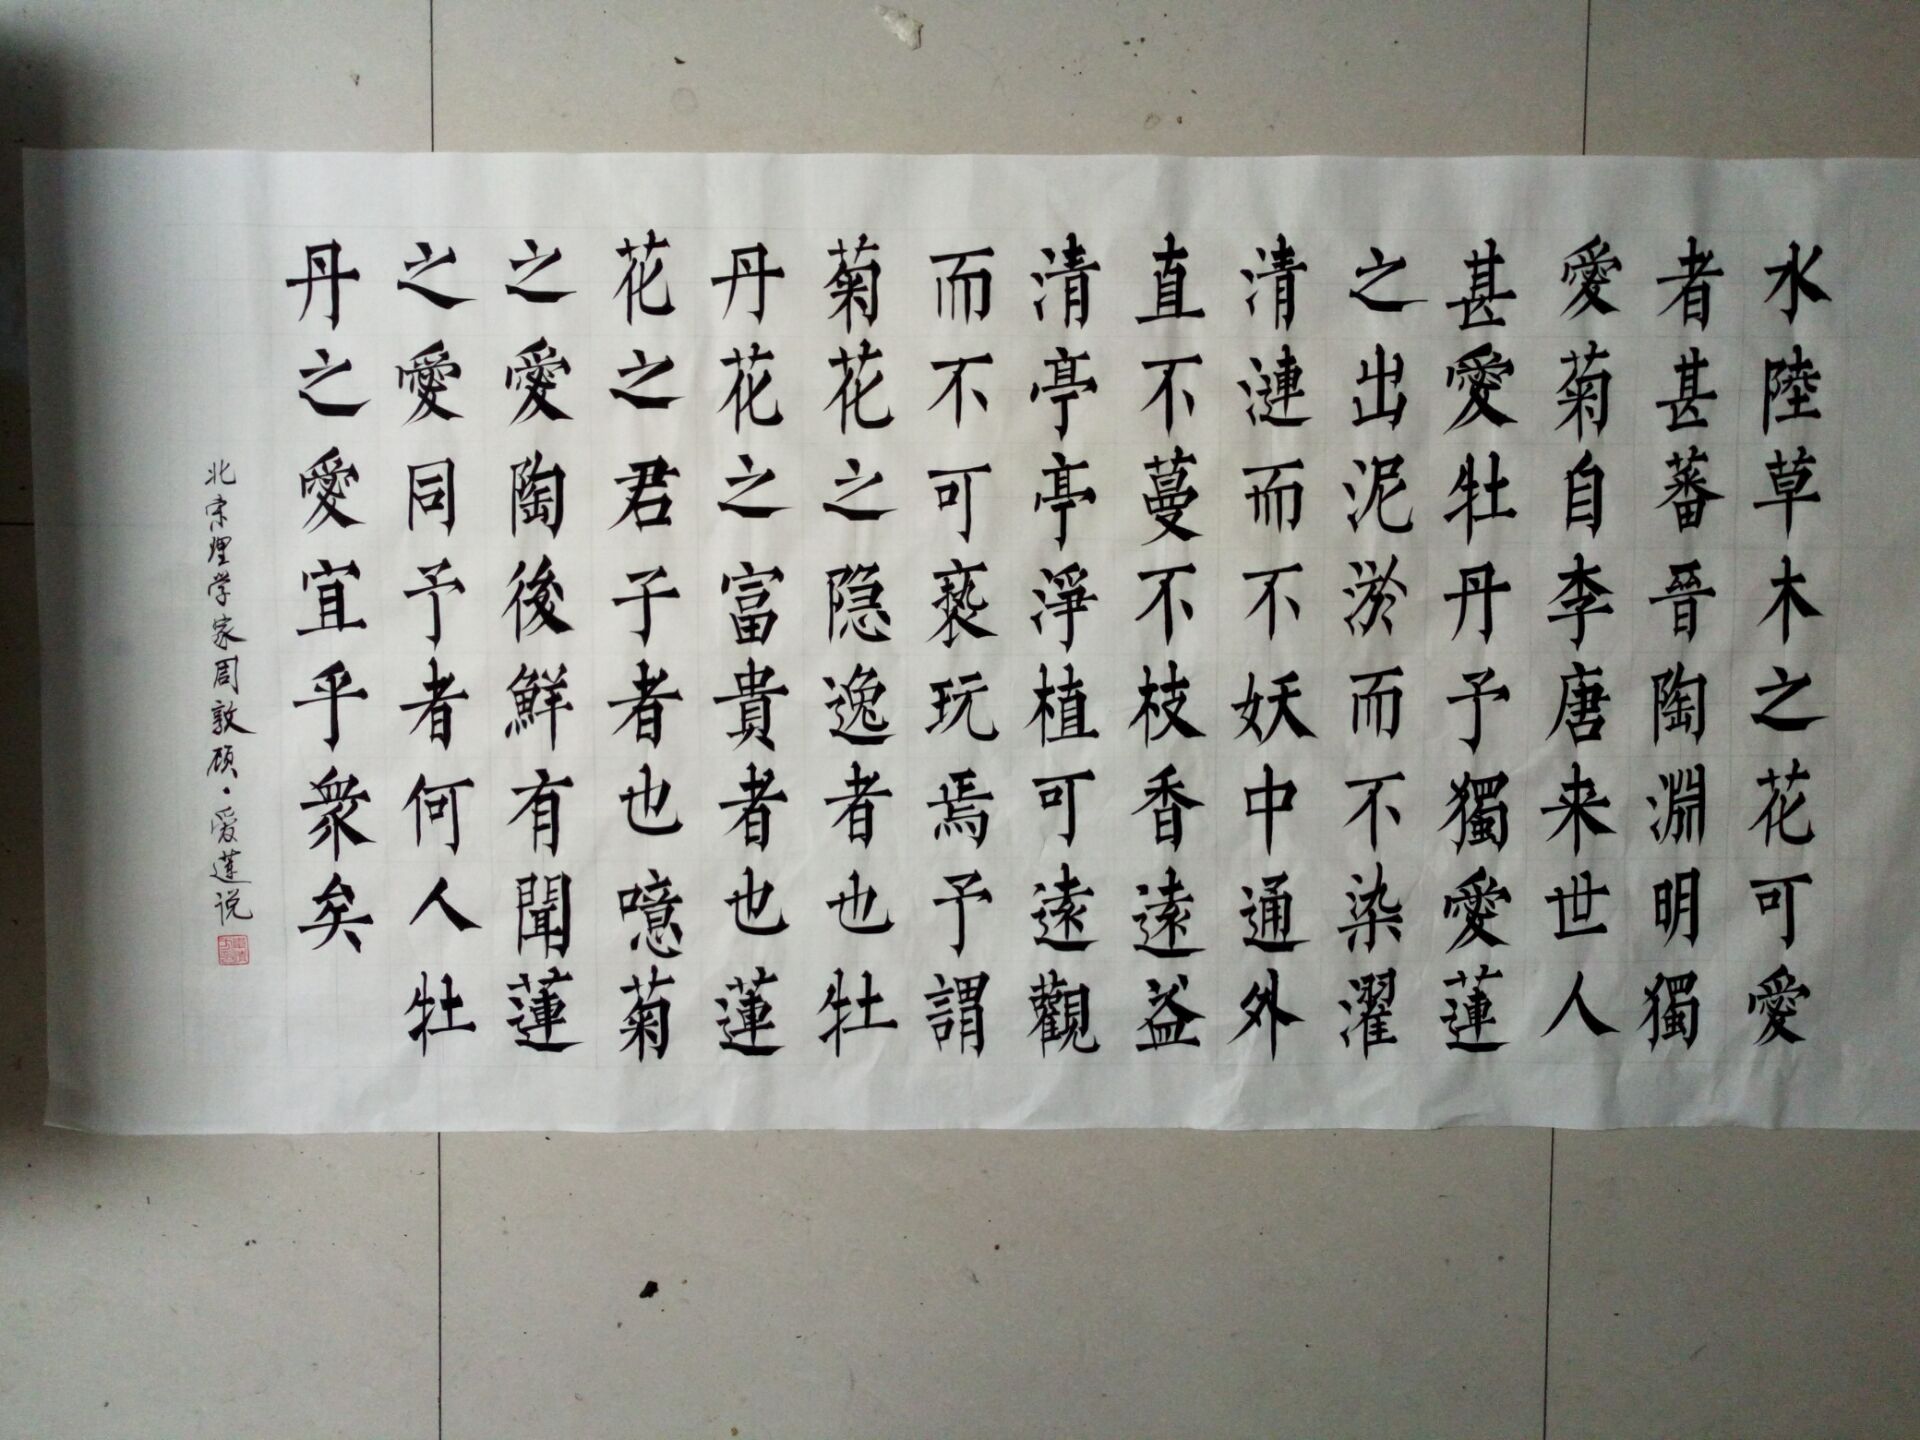 水陸草木之花可愛
者甚蕃晉陶淵明獨
愛菊自李唐来世人
甚愛牡丹予獨愛蓮
之出泥淤而不染濯
清漣而不妖中通外
直不蔓不枝香遠益
清亭亭淨植可遠觀
而不可褻玩焉予謂
菊花之隐逸者也牡
丹花之富貴者也蓮
花之君子者也噫菊
之愛陶後鮮有聞蓮
之愛同予者何人牡
丹之愛宜乎衆矣
北宋理学家周敦颐·爱莲说